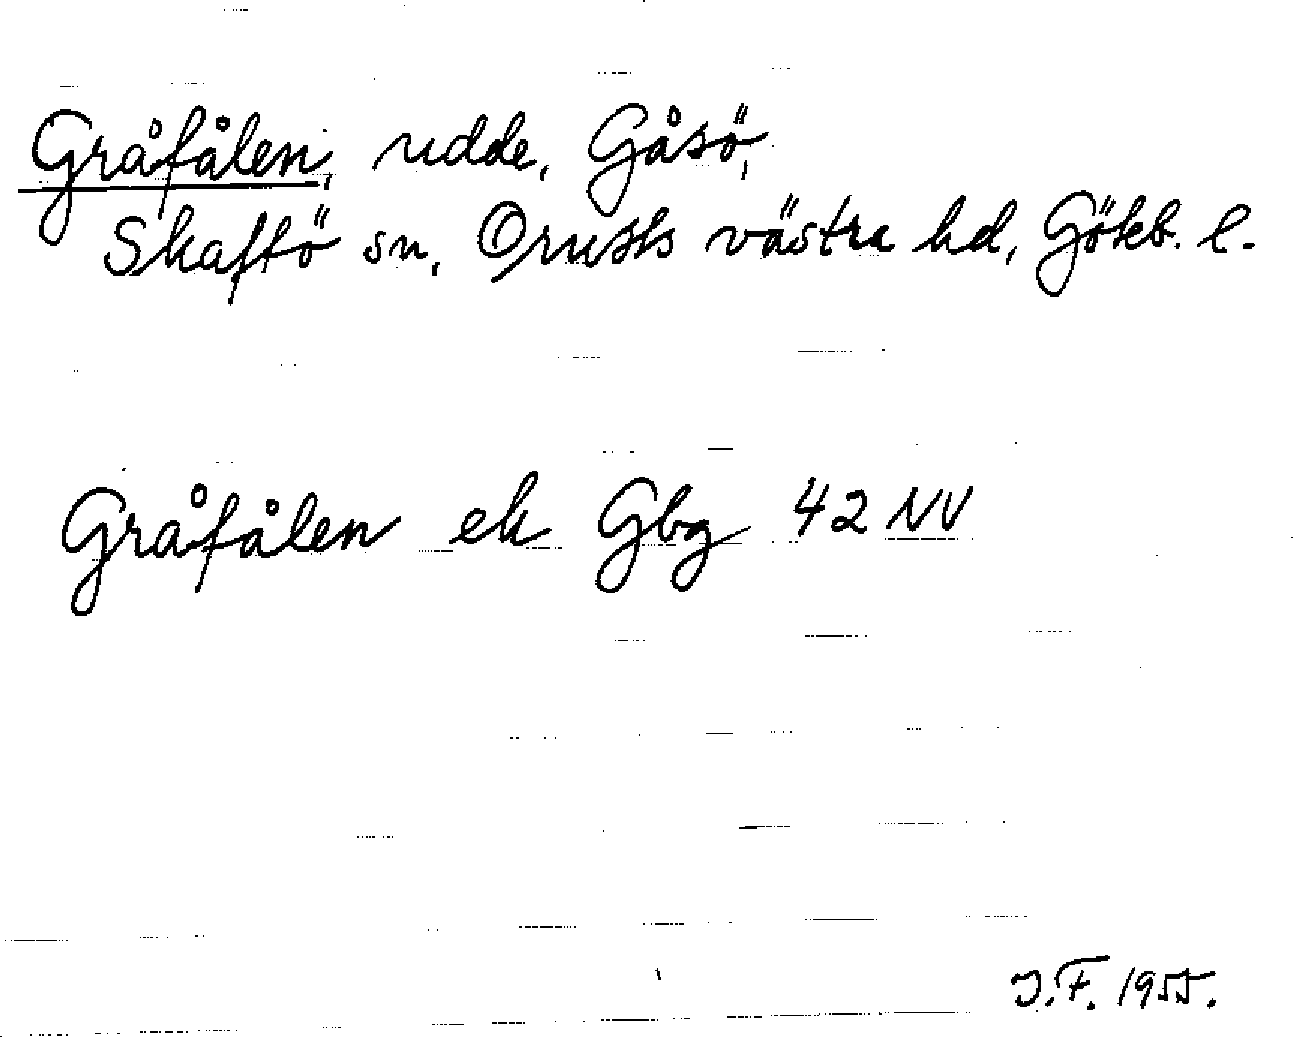 Gråfålen, udde, Gåsö,
Skaftö sn, Orusts västra hd, Göteb. l.
Gråfålen ek Gbg 42 NV
J.F. 1955.